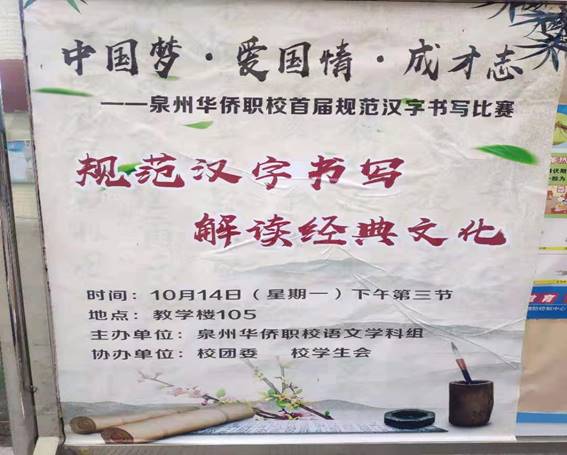 中国梦·爱国情·成才志
——泉州华侨职校首届规范汉字书写比赛
规范汉字书写
解读经典文化
时间：10月14日（星期一）下午第三节
地点：教学楼105
主办单位：泉州华侨职校语文学科组
协办单位：校团委 校学生会